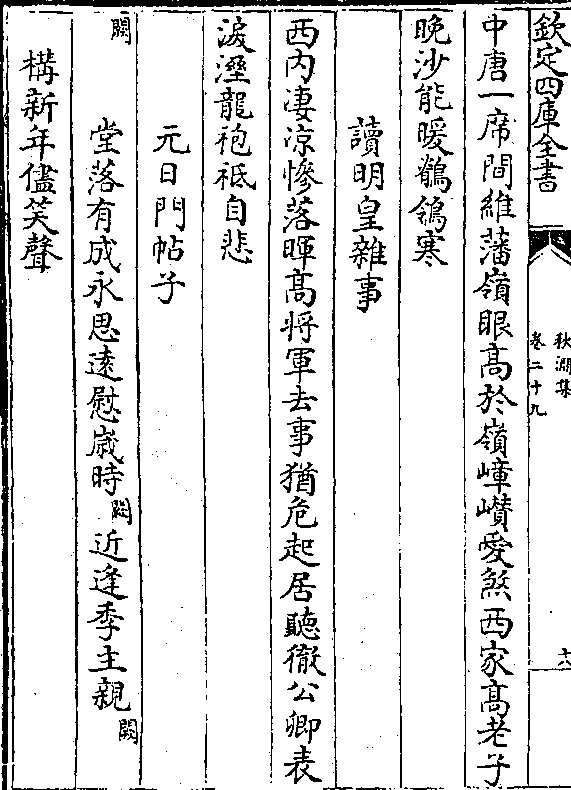 欽定四庫全書
秋澗集
卷二十九
十六
中唐一席間維藩嶺眼高於嶺嶂巑愛煞西家高老子
晚沙能暖鶺鴒寒
讀明皇雜事
西内淒凉慘落暉高將軍去事猶危起居聽徹公卿表
淚溼龍袍祗自悲
元日門帖子
闕　堂落有成永思遠慰嵗時闕近逢季主親闕
構新年儘笑聲